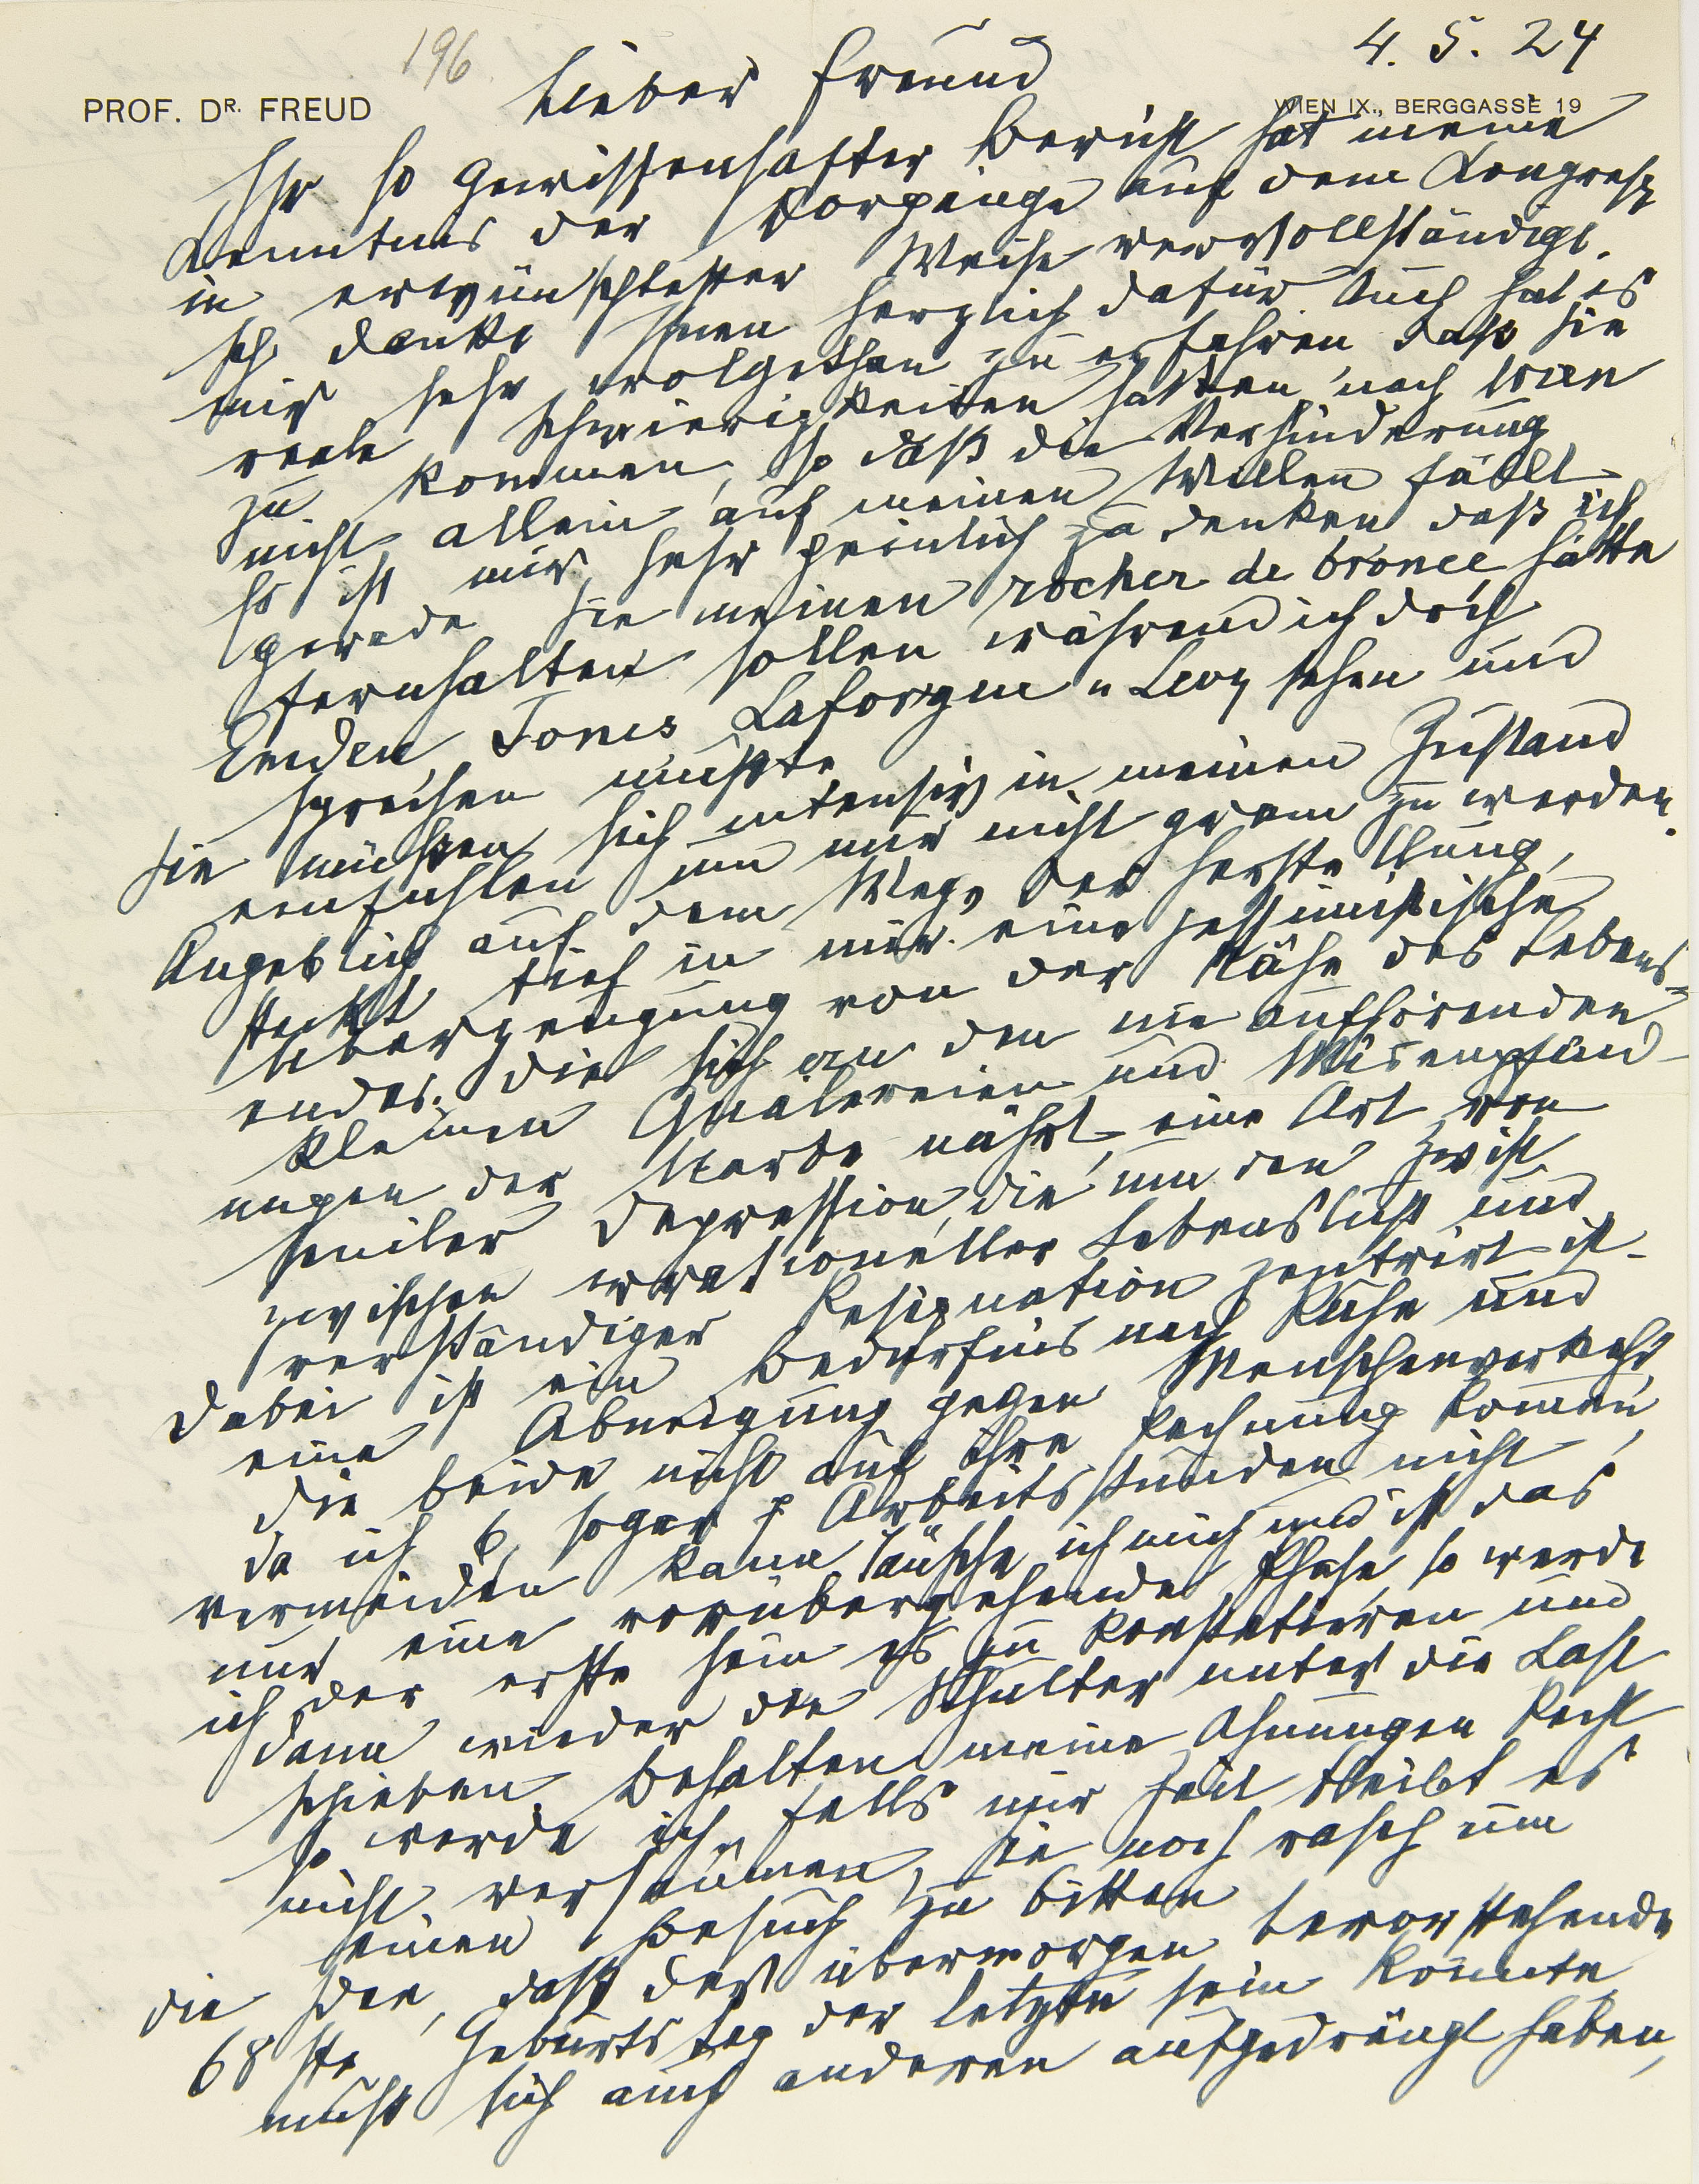 196
4. 5. 24
PROF. DR. FREUD
WIEN IX., BERGGASSE 19
Lieber Freund
Ihr so gewissenhafter Bericht hat meine
Kenntnis der Vorgänge auf dem Kongreß
in erwünschtester Weise vervollständigt.
Ich danke Ihnen herzlich dafür Auch hat es
mir sehr wolgethan zu erfahren daß Sie
reale Schwierigkeiten hatten, nach Wien
zu kommen, so daß die Verhinderung
nicht allein auf meinen Willen fällt
Es ist mir sehr peinlich zu denken daß ich
gerade Sie meinen rocher de bronce hätte
fernhalten sollen während ich doch
Emden, Jones Laforgue u Levy sehen und
sprechen mußte
Sie müssen sich intensiv in meinen Zustand
einfühlen um mir nicht gram zu werden.
Angeblich auf dem Weg der Herstellung,
steckt tief in mir eine pessimistische
Überzeugung von der Nähe des Lebens-
endes. die sich an den nie aufhörenden
kleinen Quälereien und Misempfind-
ungen der Narbe nährt, eine Art von
seniler Depression, die um den Zwist
zwischen irrationeller Lebenslust und
verständiger Resignation zentrirt ist-
Dabei ist ein Bedürfnis nach Ruhe und
eine Abneigung gegen Menschenverkehr,
die beide nicht auf ihre Rechnung kommen,
da ich 6, sogar 7 Arbeitsstunden nicht
vermeiden kann Täusche ich mich und ist das
nur eine vorübergehende Phase so werde
ich der erste sein es zu konstatieren und
dann wieder die Schulter unter die Last
schieben. Behalten meine Ahnungen Recht
so werde ich, falls mir Zeit bleibt es
nicht versäumen, Sie noch rasch um
einen Besuch zu bitten
Die Idee, daß der übermorgen bevorstehende
68ste Geburtstag der letzte sein könnte,
muß sich auch anderen aufgedrängt haben,